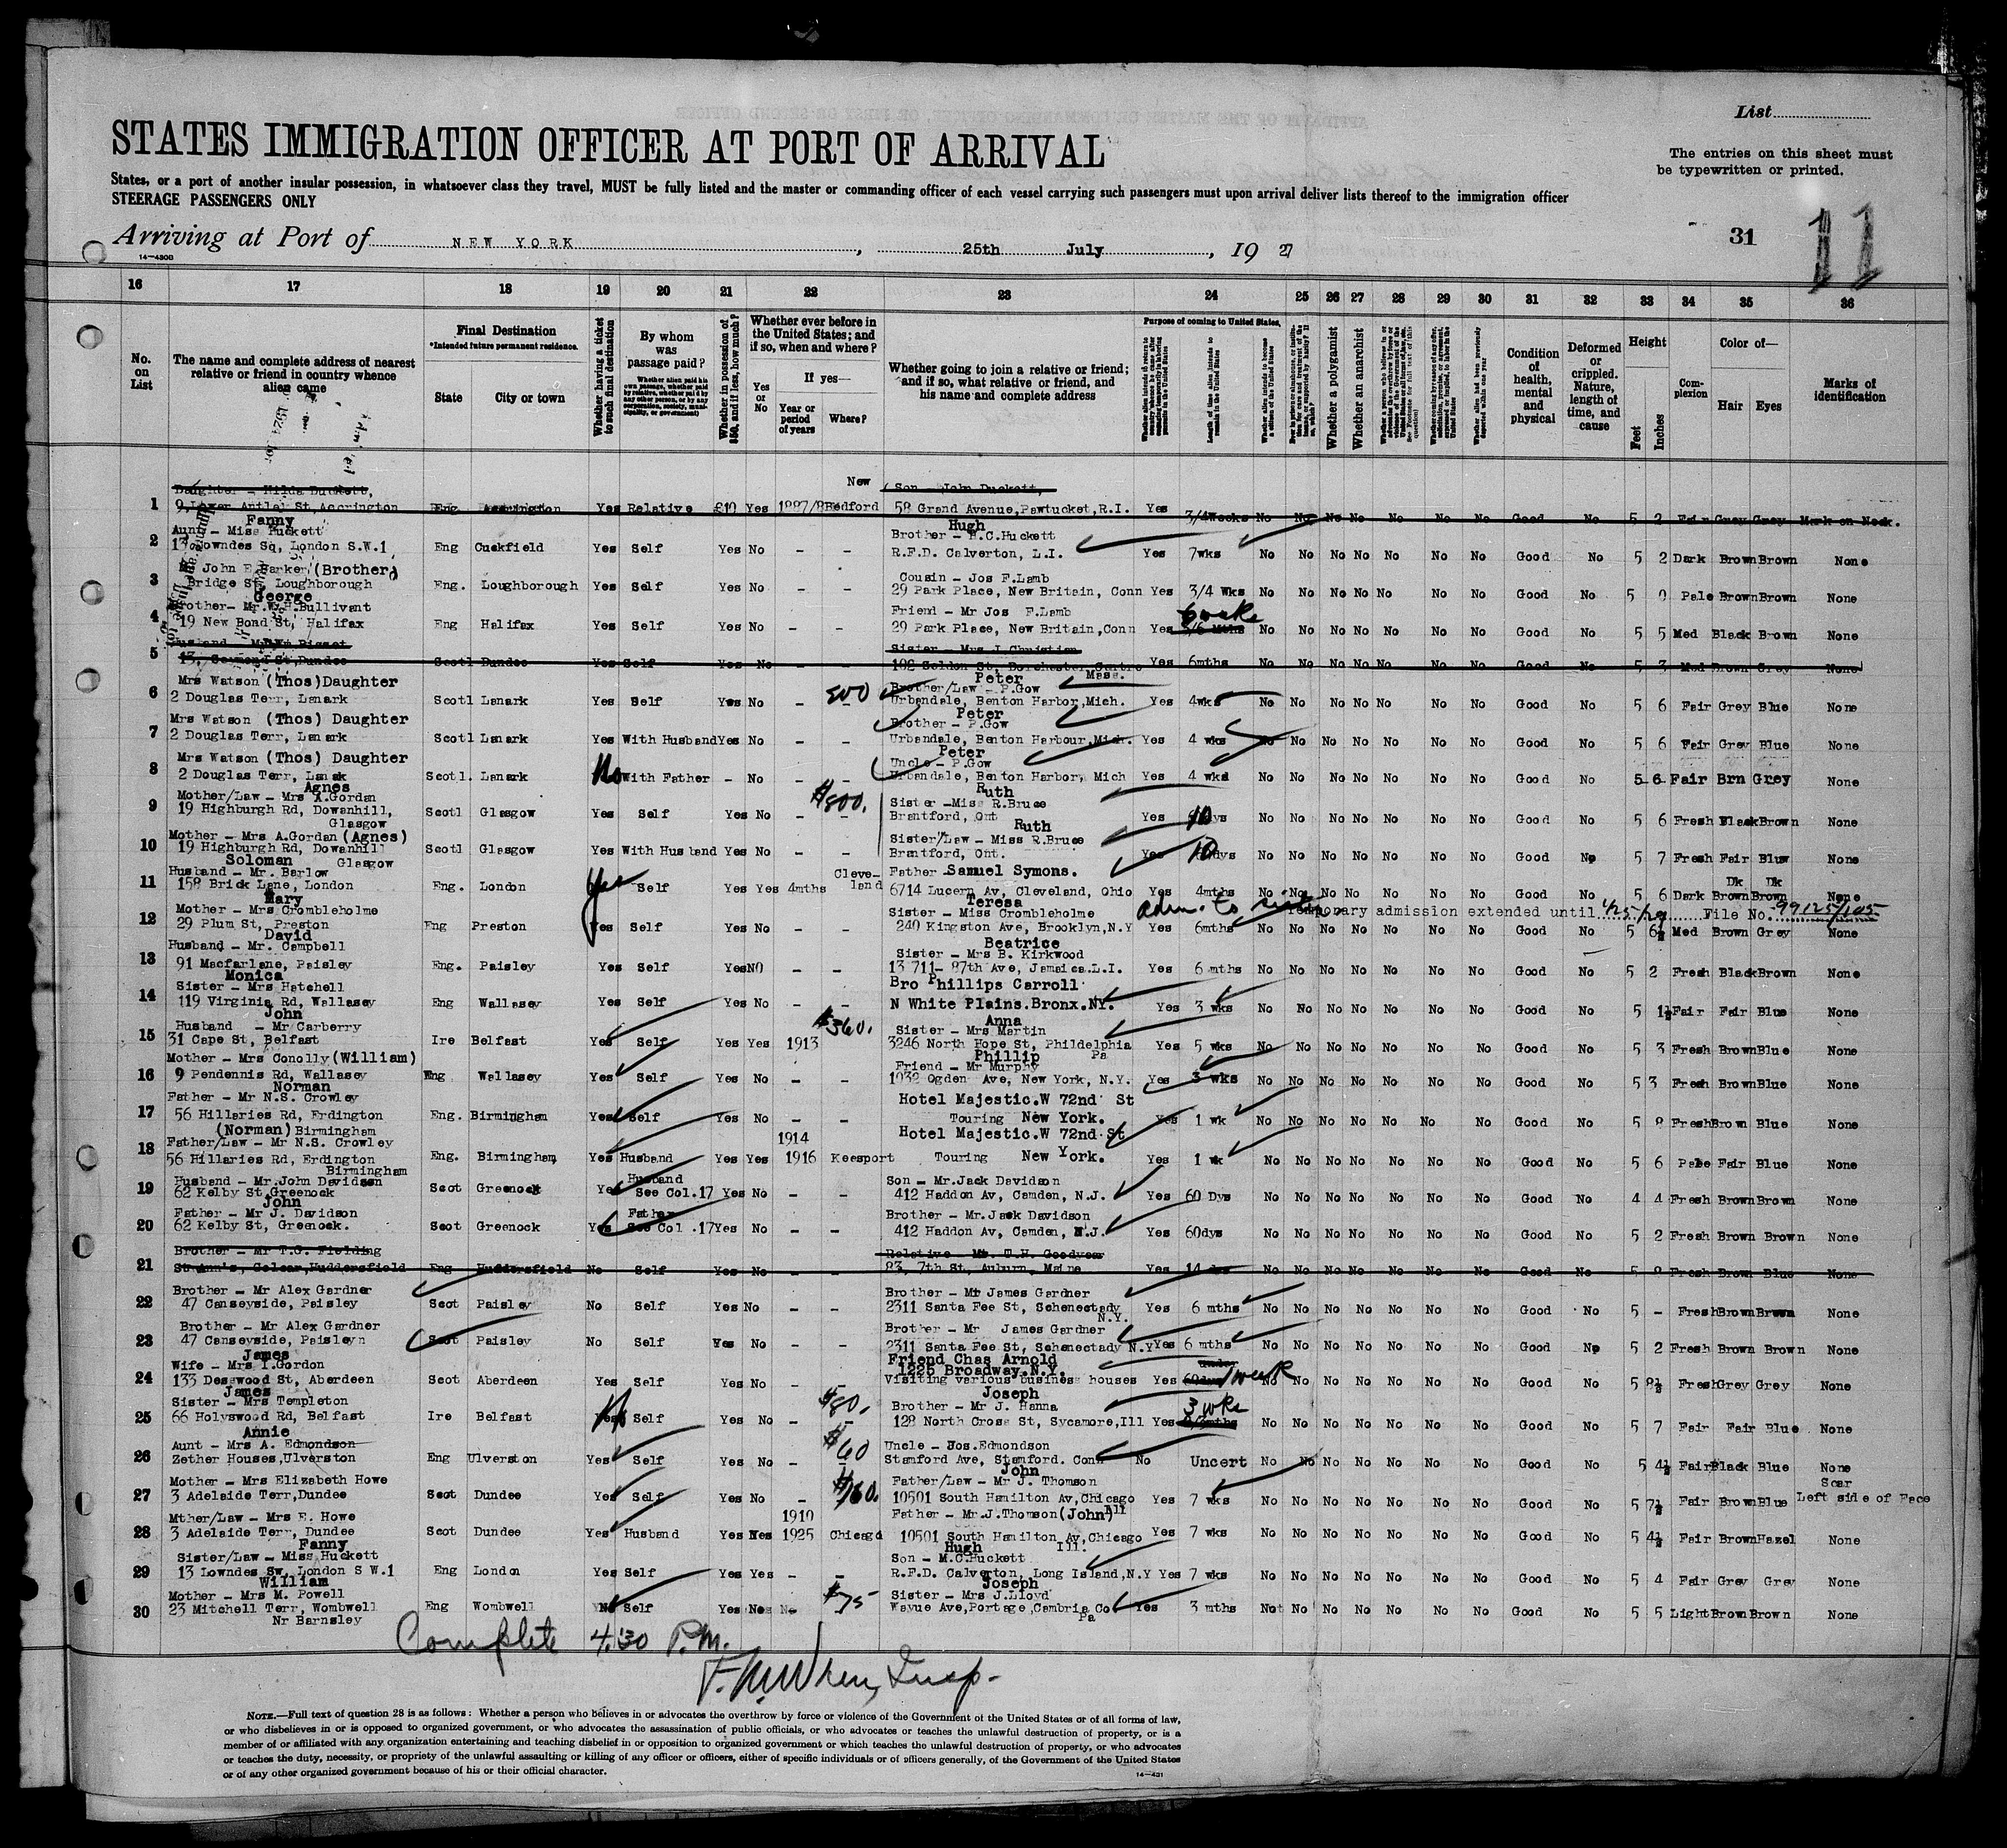 List
STATES IMMIGRATION OFFICER AT PORT OF ARRIVAL
The entries on this sheet must
be typewritten or printed.
States, or a port of another insular possession, in whatsoever class they travel, MUST be fully listed and the master or commanding officer of each vessel carrying such passengers must upon arrival deliver lists thereof to the immigration officer
STEERAGE PASSENGERS ONLY
Arriving at Port of NEW YORK, 25th July, 1927
31 11
14-430B
16 17 18 19 20 21 22 23 24 25 26 27 28 29 30 31 32 33 34 35 36
No. on List
The name and complete address of nearest relative or friend in country whence alien came
Final Destination
*Intended future permanent residence.
State City or town
Whether having a ticket to such final destination
By whom was passage paid?
Whether alien paid his own passage, whether paid by relative, whether paid by any other person, or by any corporation, society, municipality, or government)
Whether in possession of $50, and if less, how much?
Whether ever before in the United States; and if so, when and where?
Yes or No
If yes—
Year or period of years
Where?
Whether going to join a relative or friend; and if so, what relative or friend, and his name and complete address
Purpose of coming to United States,
Length of time alien intends to remain in the United States
Whether alien intends to become a citizen of the United States
Whether a polygamist
Whether an anarchist
Whether alien had been previously deported within one year
Condition of health, mental and physical
Deformed or crippled. Nature, length of time, and cause
Height
Feet Inches
Complexion
Color of—
Hair Eyes
Marks of identification
Daughter - Hilda Duckett, New Son - John Duckett,
1 St, Accrington Eng Accrington Yes Relative £10 Yes 1887/8 Bedford 58 Grand Avenue, Pawtucket, R.I. Yes 3/4Weeks No No No No No No No Good No 5 2 Fair Grey Grey Mark on Neck.
Fanny Hugh
Aunt - Miss Huckett Brother - M.C.Huckett
2 13 Lowndes Sq, London S.W.1 Eng Cuckfield Yes Self Yes No - - R.F.D. Calverton, L.I. Yes 7wks No No No No No No No Good No 5 2 Dark Brown Brown None
Mr John E Barker (Brother) Cousin - Jos F.Lamb
3 Bridge St, Loughborough Eng. Loughborough Yes Self Yes No - - 29 Park Place, New Britain, Conn Yes 3/4 Wks No No No No No No No Good No 5 9 Pale Brown Brown None
George
Brother- Mr.W.H.Bullivant Friend - Mr Jos F.Lamb 6 wks
4 19 New Bond St, Halifax Eng Halifax Yes Self Yes No - - 29 Park Place, New Britain, Conn Yes No No No No No No No Good No 5 5 Med Black Brown None
Husband - Sister - Mrs J Christian
5 13, St, Dundee Scotl Dundee Yes Self Yes No - - 102 Seldon St, Dorchester, Centre Yes 6mths No No No No No No No Good No 5 3 Med Brown Grey None
Mass.
Mrs Watson (Thos) Daughter Peter
500 Brother/Law - P.Gow
6 2 Douglas Terr, Lanark Scotl Lanark Yes Self Yes No - - Urbandale, Benton Harbor, Mich. Yes 4wks No No No No No No No Good No 5 6 Fair Grey Blue None
Mrs Watson (Thos) Daughter Peter
Brother - P.Gow
7 2 Douglas Terr, Lanark Scotl Lanark Yes With Husband Yes No - - Urbandale, Benton Harbour, Mich. Yes 4 wks No No No No No No No Good No 5 6 Fair Grey Blue None
Mrs Watson (Thos) Daughter Peter
Uncle - P.Gow
8 2 Douglas Terr, Lanak Scotl. Lanark No With Father - No - - Urbandale, Benton Harbor, Mich Yes 4 wks No No No No No No No Good No 5 6 Fair Brn Grey None
Agnes $800. Ruth
Mother/Law - Mrs A.Gordan Sister -Miss R.Bruce
9 19 Highburgh Rd, Dowanhill, Scotl Glasgow Yes Self Yes No - - Brantford, Ont Yes 10 dys No No No No No No No Good No 5 6 Fresh Black Brown None
Glasgow Ruth
Mother - Mrs A.Gordan (Agnes) Sister/Law - Miss R.Bruce
10 19 Highburgh Rd, Dowanhill Scotl Glasgow Yes With Husband Yes No - - Brantford, Ont. Yes 10 dys No No No No No No No Good No 5 7 Fresh Fair Blue None
Soloman Glasgow
Husband - Mr. Barlow Cleve- Father Samuel Symons.
11 158 Brick Lane, London Eng. London Yes Self Yes Yes 4mths land 6714 Lucern Av, Cleveland, Ohio Yes 4mths No No No No No No No Good No 5 6 Dark Dk Brown Dk Brown None
Mary Teresa
Mother - Mrs Crombleholme Sister - Miss Crombleholme Adm. to Temporary admission extended until 1/25/29 File No. 99125/105
12 29 Plum St, Preston Eng Preston Yes Self Yes No - - 240 Kingston Ave, Brooklyn, N.Y Yes 6mths No No No No No No No Good No 5 6½ Med Brown Grey None
David Beatrice
Husband - Mr. Campbell Sister - Mrs B. Kirkwood
13 91 Macfarlane, Paisley Eng. Paisley Yes Self Yes NO - - 13 711- 87th Ave, Jamaica.L.I. Yes 6 mths No No No No No No No Good No 5 2 Fresh Black Brown None
Monica
Sister - Mrs Hatchell Bro Phillips Carroll
14 119 Virginia Rd, Wallasey Eng Wallasey Yes Self Yes No - - N White Plains.Bronx.NY. Yes 3 wks No No No No No No No Good No 5 1½ Fair Fair Blue None
John $360. Anna
Husband - Mr Carberry Sister - Mrs Martin
15 31 Cape St, Belfast Ire Belfast Yes Self Yes Yes 1913 3246 North Hope St, Phildelphia Yes 5 wks No No No No No No No Good No 5 3 Fresh Brown Blue None
Phillip Pa
Mother - Mrs Conolly (William) Friend - Mr Murphy
16 9 Pendennis Rd, Wallasey Eng Wallasey Yes Self Yes No - - 1032 Ogden Ave, New York, N.Y. Yes 3 wks No No No No No No No Good No 5 3 Fresh Brown Blue None
Norman
Father - Mr N.S. Crowley Hotel Majestic.W 72nd St
17 56 Hillaries Rd, Erdington Eng. Birmingham Yes Self Yes No - - Touring New York. Yes 1 wk No No No No No No No Good No 5 8 Fresh Brown Blue None
(Norman) Birmingham
Father/Law - Mr N.S. Crowley 1914 Hotel Majestic.W 72nd St
18 56 Hillaries Rd, Erdington Eng. Birmingham Yes Husband Yes Yes 1916 Keesport Touring New York. Yes 1 wk No No No No No No No Good No 5 6 Pale Fair Blue None
Birmingham
Husband - Mr.John Davidson Husband Son - Mr.Jack Davidson
19 62 Kelby St, Greenock Scot Greenock Yes See Col.17 Yes No - - 412 Haddon Av, Camden, N.J. Yes 60 Dys No No No No No No No Good No 4 4 Fresh Brown Brown None
John
Father - Mr J. Davidson Father Brother - Mr.Jack Davidson
20 62 Kelby St, Greenock. Scot Greenock Yes See Col .17 Yes No - - 412 Haddon Av, Camden, N.J. Yes 60dys No No No No No No No Good No 5 2 Fresh Brown Brown None
Brother - Mr T.G. Fielding Relative - Mr. T.H. Goodyear
21 St Ann's, Golcar, Huddersfield Eng Huddersfield No Self Yes No - - 83, 7th St, Auburn, Maine Yes 14 dys No No No No No No No Good No 5 8 Fresh Brown Blue None
Brother - Mr Alex Gardner Brother - Mr James Gardner
22 47 Canseyside, Paisley Scot Paisley No Self Yes No - - 2311 Santa Fee St, Schenectady Yes 6 mths No No No No No No No Good No 5 - Fresh Brown Brown None
N.Y.
Brother - Mr Alex Gardner Brother - Mr James Gardner
23 47 Canseyside, Paisleyn Scot Paisley No Self Yes No - - 2311 Santa Fee St, Schenectady N.Y Yes 6 mths No No No No No No No Good No 5 2 Fresh Brown Brown None
James Friend Chas Arnold
Wife - Mrs I.Gordon 1225 Broadway.N.Y.
24 133 Desswood St, Aberdeen Scot Aberdeen Yes Self Yes No - - Visiting various business houses Yes 1 week No No No No No No No Good No 5 8½ Fresh Grey Grey None
James $80. Joseph
Sister - Mrs Templeton Brother - Mr J. Hanna 3 wks
25 66 Holyswood Rd, Belfast Ire Belfast Self Yes No - - 128 North Cross St, Sycamore, Ill Yes No No No No No No No Good No 5 7 Fair Fair Blue None
Annie
Aunt - Mrs A. Edmondson $60 Uncle - Jos.Edmondson
26 Zether Houses, Ulverston Eng Ulverston Yes Self Yes No - Stamford Ave, Stamford. Conn No Uncert No No No No No No No Good No 5 4½ Fair Black Blue None
John
Mother - Mrs Elizabeth Howe $160. Father/Law - Mr J. Thomson Scar
27 3 Adelaide Terr, Dundee Scot Dundee Yes Self Yes No - 10501 South Hamilton Av, Chicago Yes 7 wks No No No No No No No Good No 5 7½ Fair Brown Blue Left side of Face
Mther/Law - Mrs E. Howe 1910 Father - Mr.J.Thomson (John) Ill
28 3 Adelaide Terr, Dundee Scot Dundee Yes Husband Yes Yes 1925 Chicago 10501 South Hamilton Av, Chicago Yes 7 wks No No No No No No No Good No 5 4½ Fair Brown Hazel None
Fanny Hugh Ill.
Sister/Law - Miss Huckett Son - M.C.Huckett
29 13 Lowndes Sw, London S W.1 Eng London Yes Self Yes Yes - - R.F.D. Calverton, Long Island, N.Y Yes 7 wks No No No No No No No Good No 5 4 Fair Grey Grey None
William Joseph
Mother - Mrs M. Powell $75 Sister - Mrs J.Lloyd
30 23 Mitchell Terr, Wombwell Eng Wombwell No Self Yes No Wayue Ave, Portage, Cambria Co Yes 3 mths Not No No No No No No Good No 5 5 Light Brown Brown None
Nr Barnsley Pa
Complete 4.30 P.M.
Insp.
NOTE.—Full text of question 28 is as follows: Whether a person who believes in or advocates the overthrow by force or violence of the Government of the United States or of all forms of law,
or who disbelieves in or is opposed to organized government, or who advocates the assassination of public officials, or who advocates or teaches the unlawful destruction of property, or is a
member of or affiliated with any organization entertaining and teaching disbelief in or opposition to organized government or which teaches the unlawful destruction of property, or who advocates
or teaches the duty, necessity, or propriety of the unlawful assaulting or killing of any officer or officers, either of specific individuals or of officers generally, of the Government of the United States
or of any other organized government because of his or their official character.
14-431